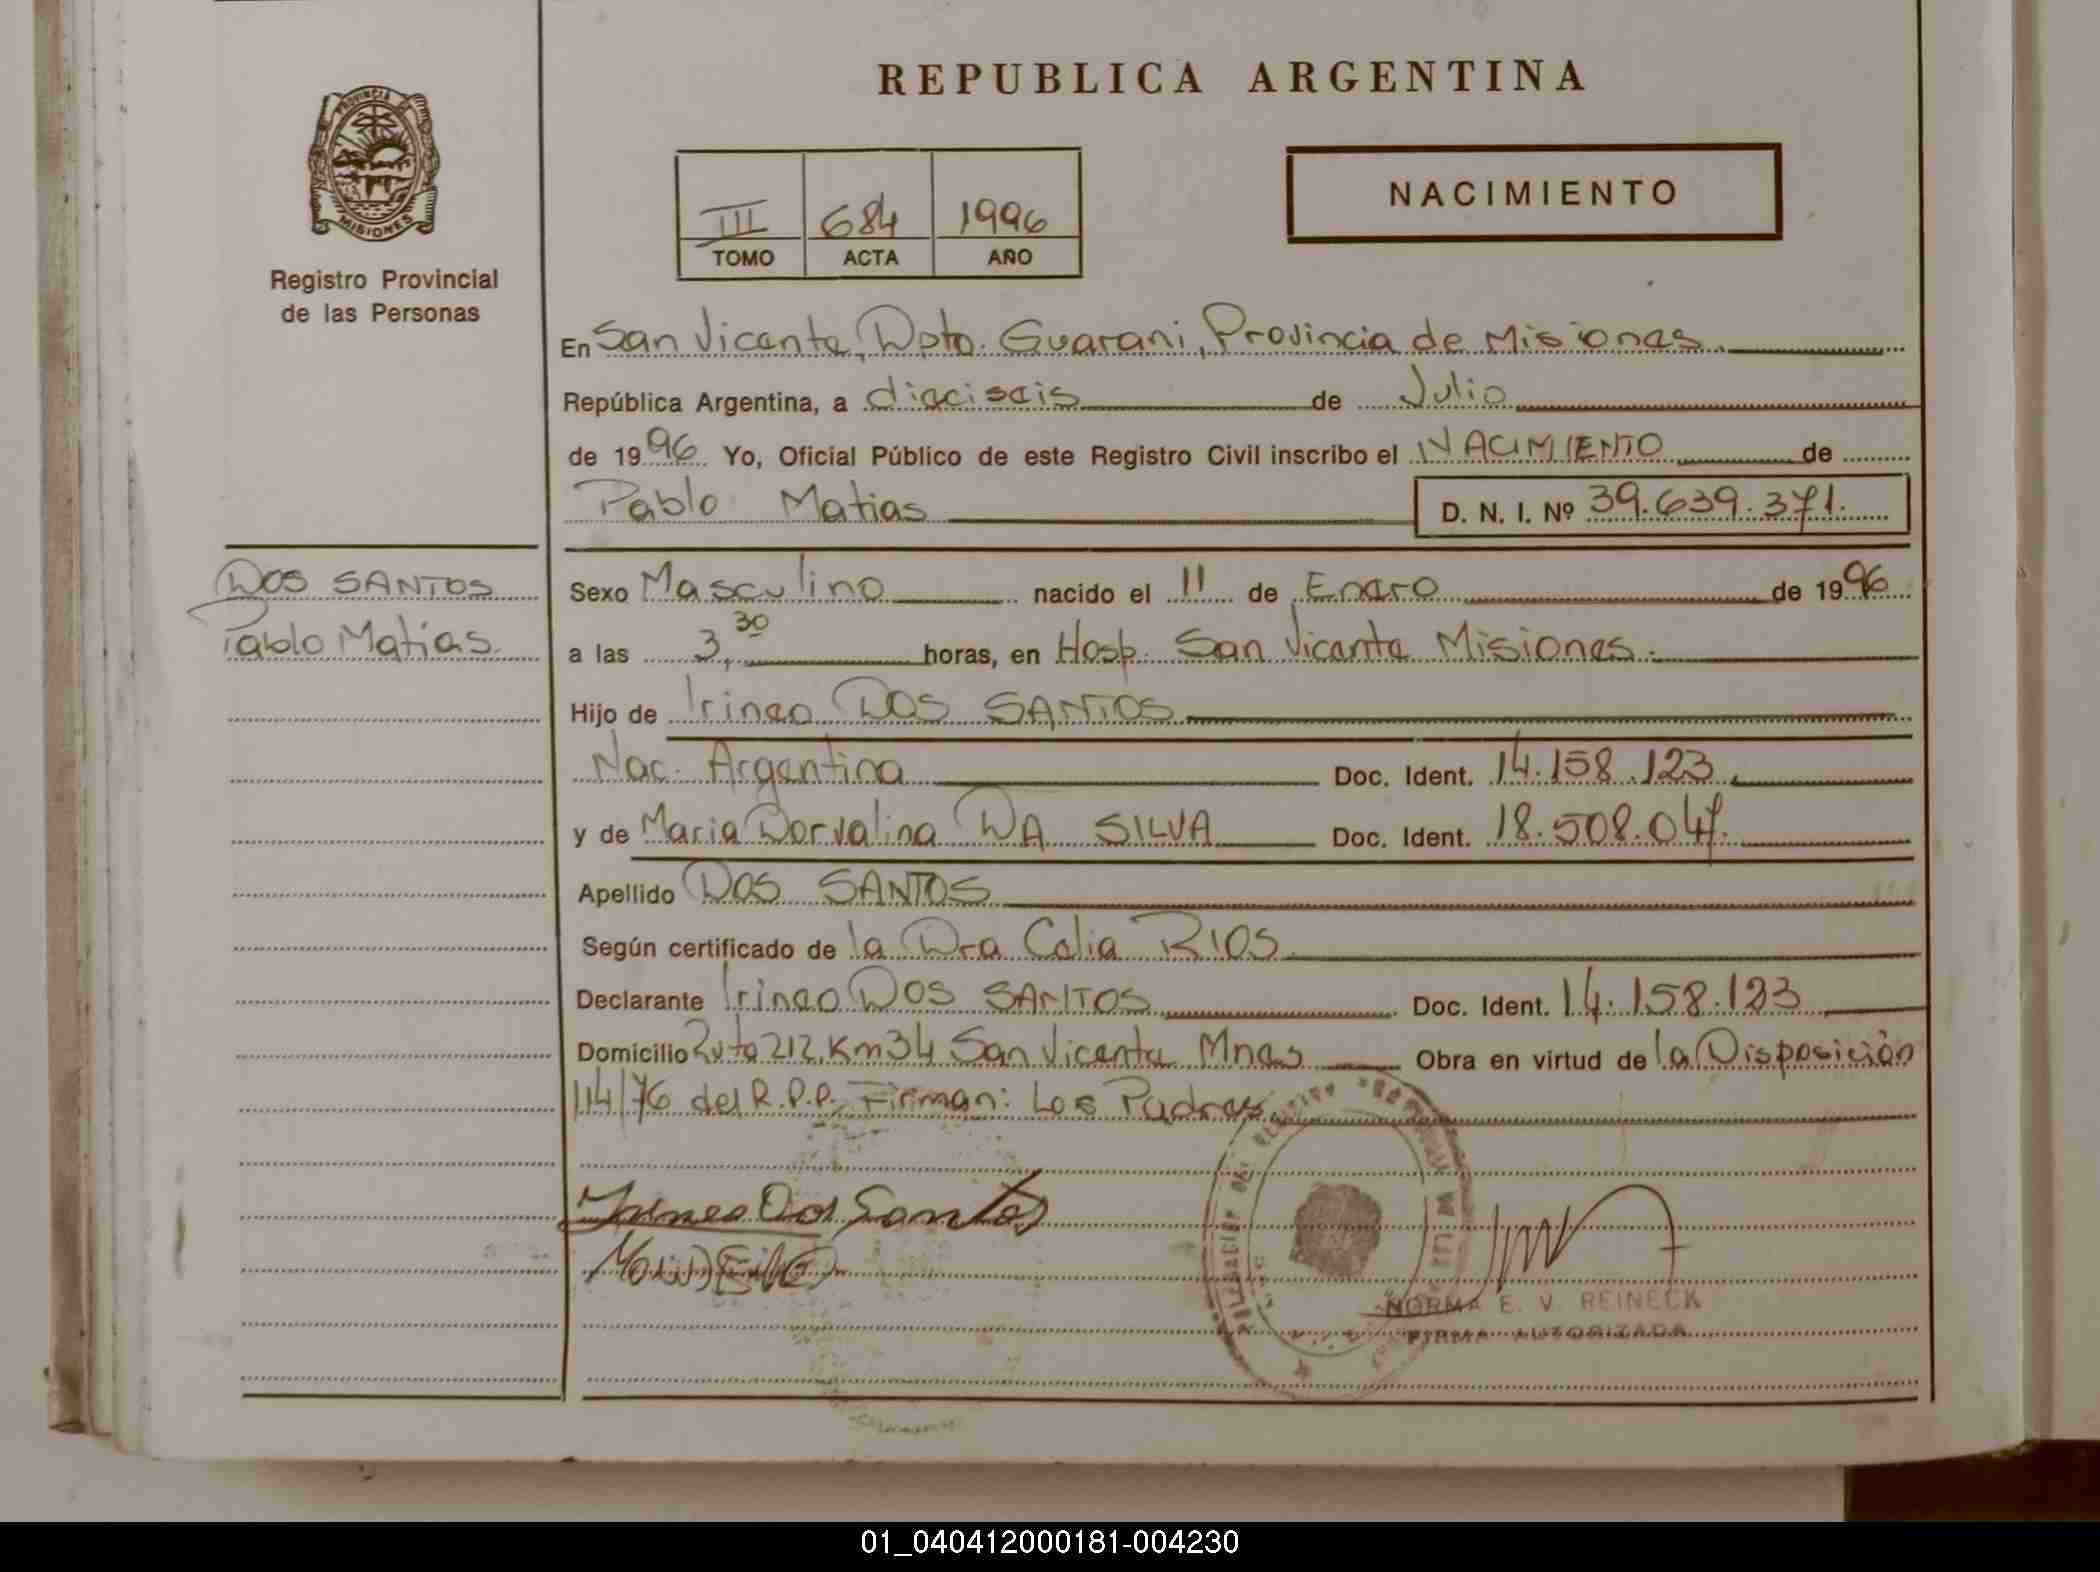 REPUBLICA ARGENTINA
PROVINCIA DE
MISIONES
Registro Provincial
de las Personas
III 684 1996
TOMO ACTA AÑO
NACIMIENTO
En San Vicente, Dpto. Guarani, Provincia de Misiones.
República Argentina, a dieciseis de Julio
de 1996 Yo, Oficial Público de este Registro Civil inscribo el NACIMIENTO de
Pablo Matias D. N. I. Nº 39.639.371.
DOS SANTOS
Pablo Matias.
Sexo Masculino nacido el 11 de Enero de 1996
a las 3,30 horas, en Hosp. San Vicente Misiones.
Hijo de Irineo DOS SANTOS
Nac. Argentina Doc. Ident. 14.158.123
y de Maria Dorvalina DA SILVA Doc. Ident. 18.508.047.
Apellido DOS SANTOS
Según certificado de la Dra Celia RIOS
Declarante Irineo DOS SANTOS Doc. Ident. 14.158.123
Domicilio Ruta 212, Km 34 San Vicente Mnes Obra en virtud de la Disposición
114/76 del R.P.P. Firman: Los Padres
Irineo Dos Santos
NORMA E. V. REINECK
FIRMA AUTORIZADA
01_040412000181-004230